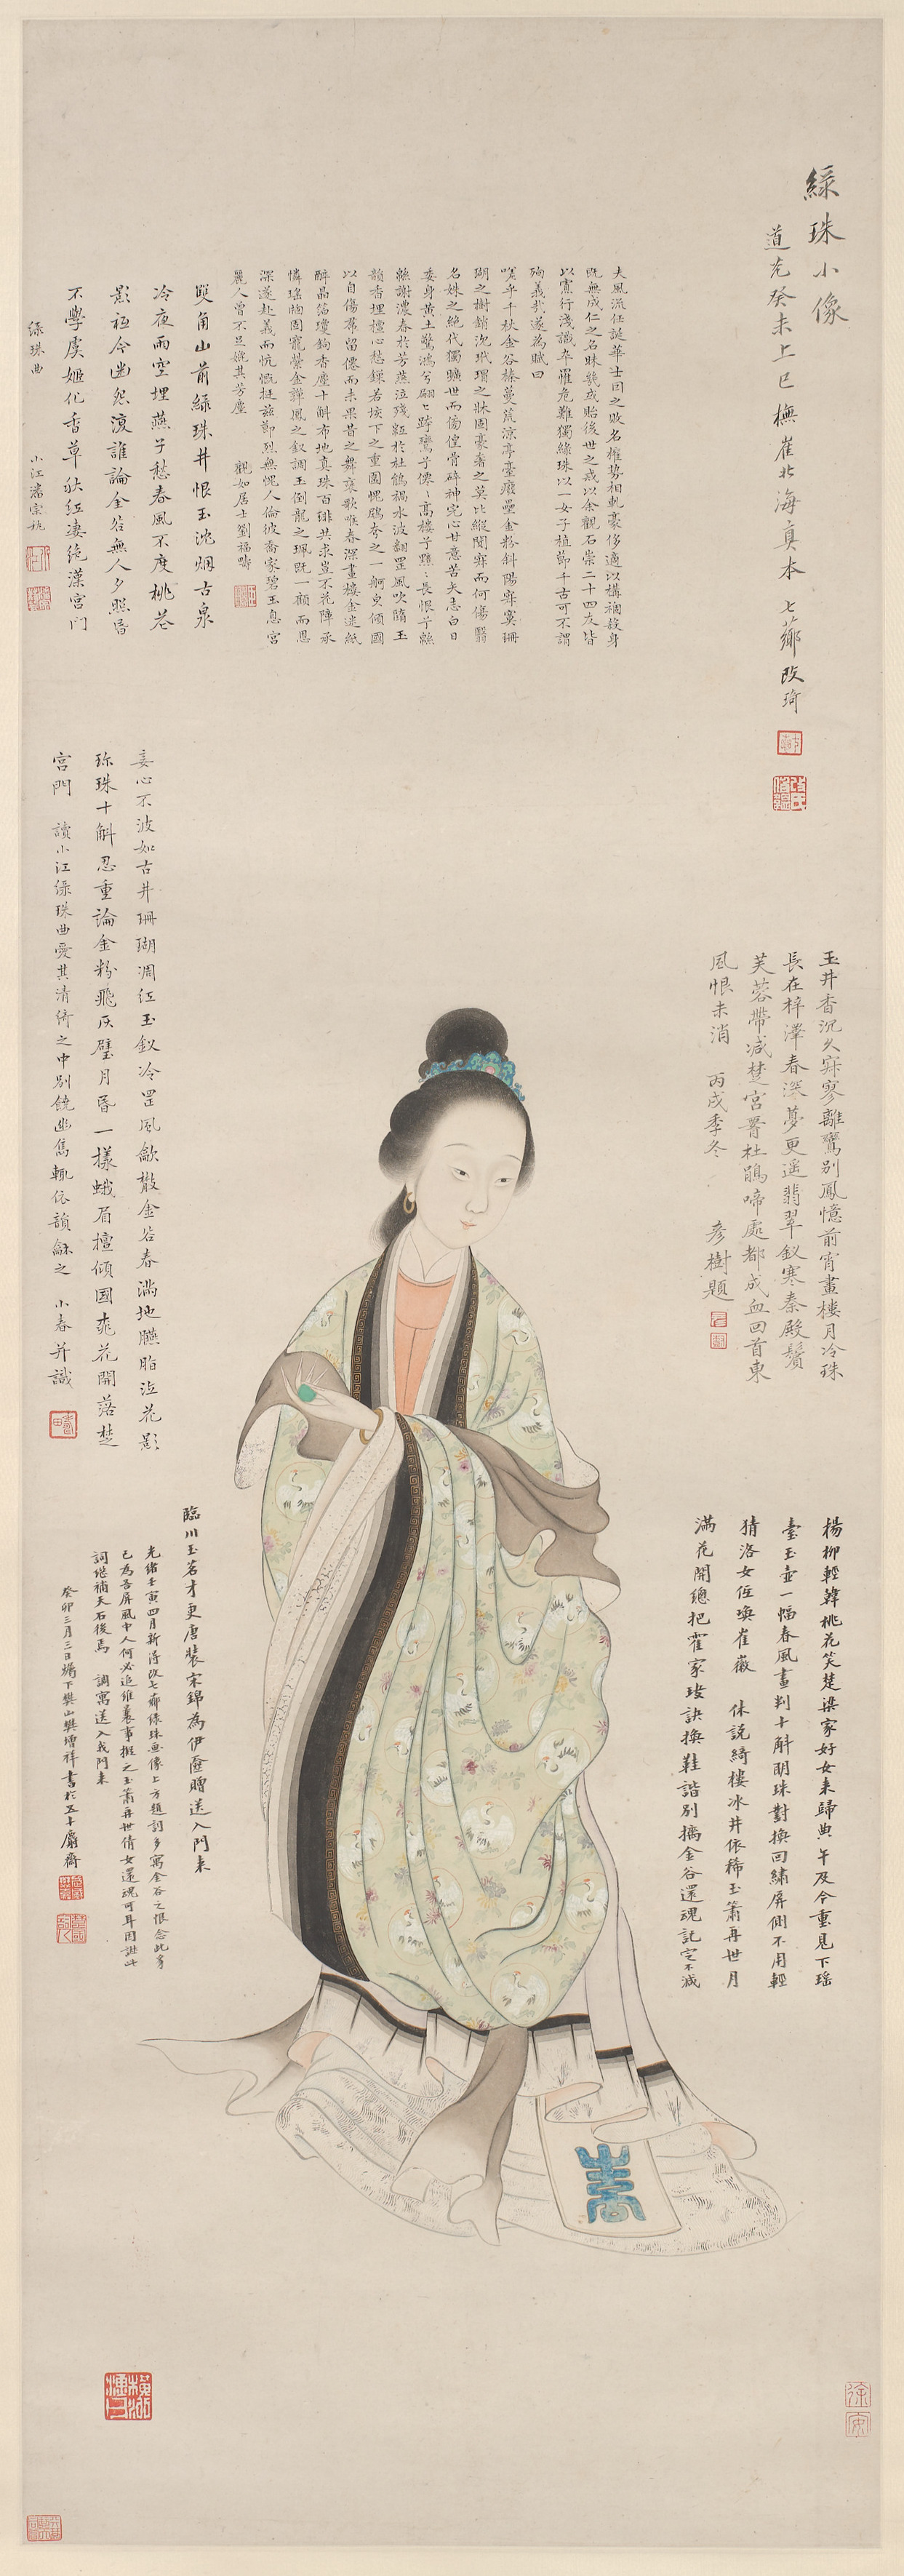 綠珠小像
道光癸未上巳橅崔北海真本 七薌改琦
夫風流任誕華士因之敗名權勢相軋豪侈適以構禍殺身
既無成仁之名昧幾或貽後世之戒以余觀石崇二十四友皆
以寡行淺識卒罹危難獨綠珠以一女子植節千古可不謂
殉義哉遂為賦曰
嗟乎千秋金谷榛蔓荒涼亭臺廢壘金粉斜陽寂寞珊
瑚之樹銷沉玳瑁之牀固豪奢之莫比縱闃寂而何傷翳
名姝之絕代獨曠世而傍徨骨碎神完心甘意苦矢志白日
委身黃土驚鴻兮翩々跨鸞兮僊々高樓兮黯々長恨兮緜
緜謝濃春於芳燕泣殘紅於杜鵑禍水波翻罡風吹墮玉
韻香埋檀心愁鏁若垓下之重圍愧鴟夷之一舸臾傾國
以自傷席留僊而未果昔之舞褎歌喉春深畫樓金迷紙
醉晶箔瓊鉤香塵十斛布地真珠百琲共求豈不花陣承
憐瑤牕固寵縈金譂鳳之釵調玉倒龍之珮既一顧而恩
深遂赴義而忼慨挺茲節烈無愧人倫彼喬家碧玉息宮
麗人曾不足媲其芳塵 觀如居士劉福疇
雙角山前綠珠井恨玉沈烟古泉
冷夜雨空埋燕子愁春風不度桃花
影秪今幽怨復誰論金谷無人夕照昏
不學虞姬化香草飲紅淒絕漢宮門
綠珠曲 小江潘宗杭
妾心不波如古井珊瑚凋紅玉釵冷罡風歙散金谷春滿地臙脂泣花影
珎珠十斛忍重論金粉飛灰璧月昏一樣蛾眉擅傾國桃花開落楚
宮門 讀小江綠珠曲愛其清綺之中別饒幽雋輒依韻龢之 小春并識
玉井香沉久寂寥離鸞別鳳憶前宵畫樓月冷珠
長在梓澤春深夢更遥翡翠釵寒秦殿鬢
芙蓉帶減楚宮罾杜鵑啼處都成血回首東
風恨未消 丙戌季冬 彥樹題
楊柳輕韓桃花笑楚梁家好女來歸典午及今重見下瑤
臺玉壺一幅春風畫判十斛明珠對換回繡屏側不用輕
猜洛女侄喚崔徽 休說綺樓冰井依稀玉簫再世月
滿花開總把霍家玦訣換鞋諧別攜金谷還魂記定不減
臨川玉茗才更唐裝宋錦為伊奩贈送入門來
光緒壬寅四月新得改七薌綠珠畫像上方題詞多寓金谷之恨念此豸
已為吾屏風中人何必追維曩事擬之玉簫再世倩女還魂可耳因譔此
詞俾補天石後焉 調寄送入我門來
癸卯三月三日灞下樊山樊增祥書於五十麝齋